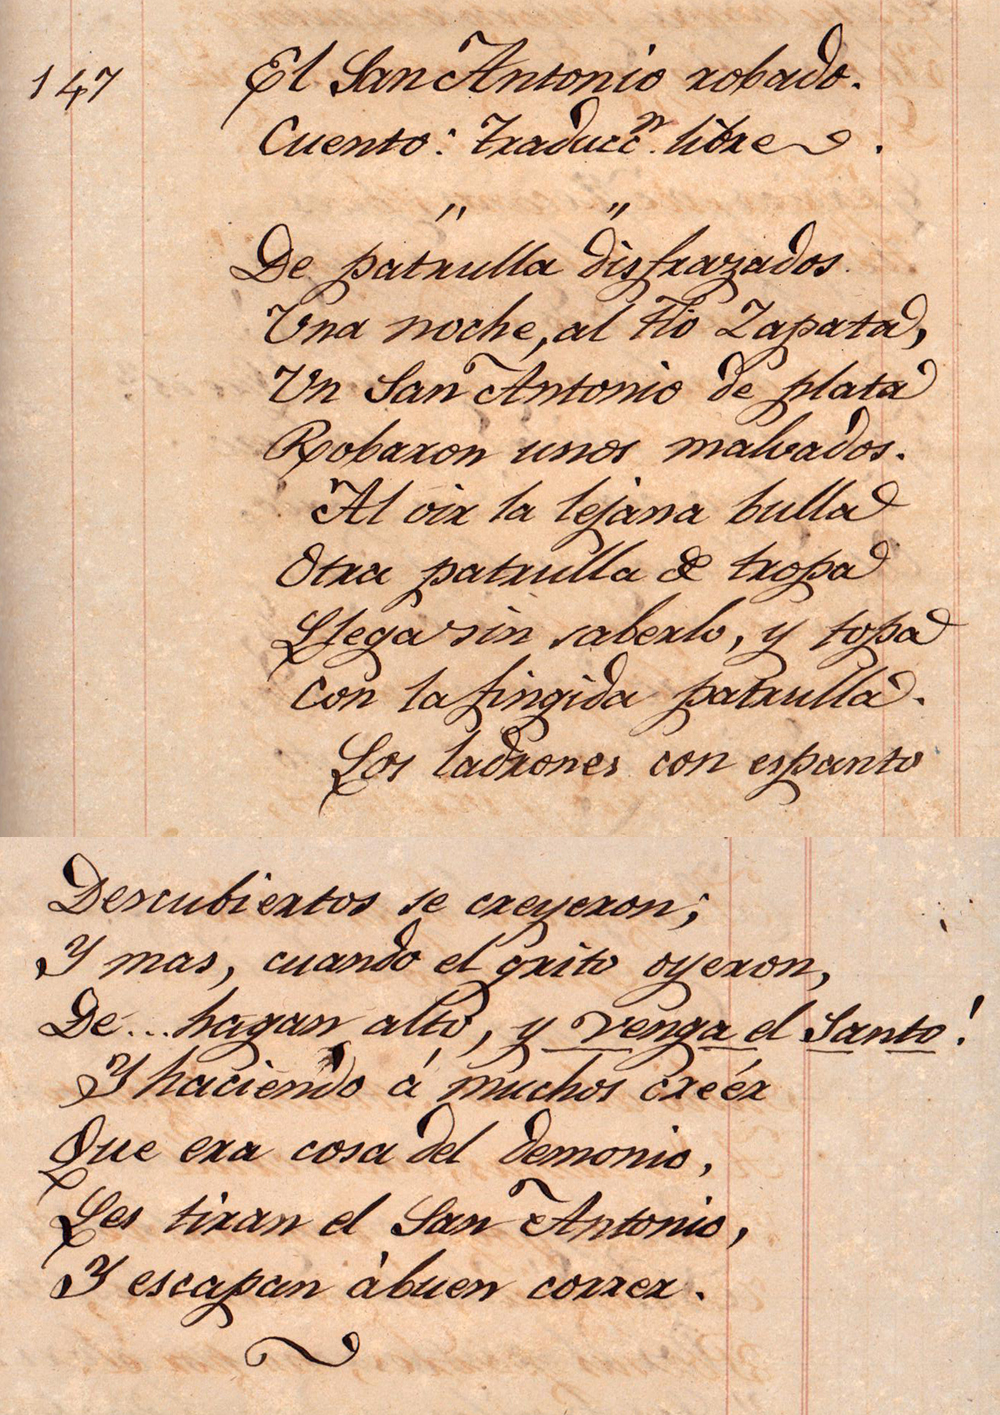 147
El San Antonio robado.
Cuento: Traducc.n libre.
" "
De patrulla disfrazados
Una noche, al tio Zapata,
Un San Antonio de plata
Robaron unos malvados.
Al oir la lejana bulla
Otra patrulla de tropa
Llega sin saberlo, y topa
Con la fingida patrulla.
Los ladrones con espanto
Descubiertos se creyeron;
Y mas, cuando el grito oyeron,
De... hagan alto, y venga el Santo!
Y haciendo á muchos creér
Que era cosa del demonio,
Les tiran el San Antonio,
Y escapan à buen correr.